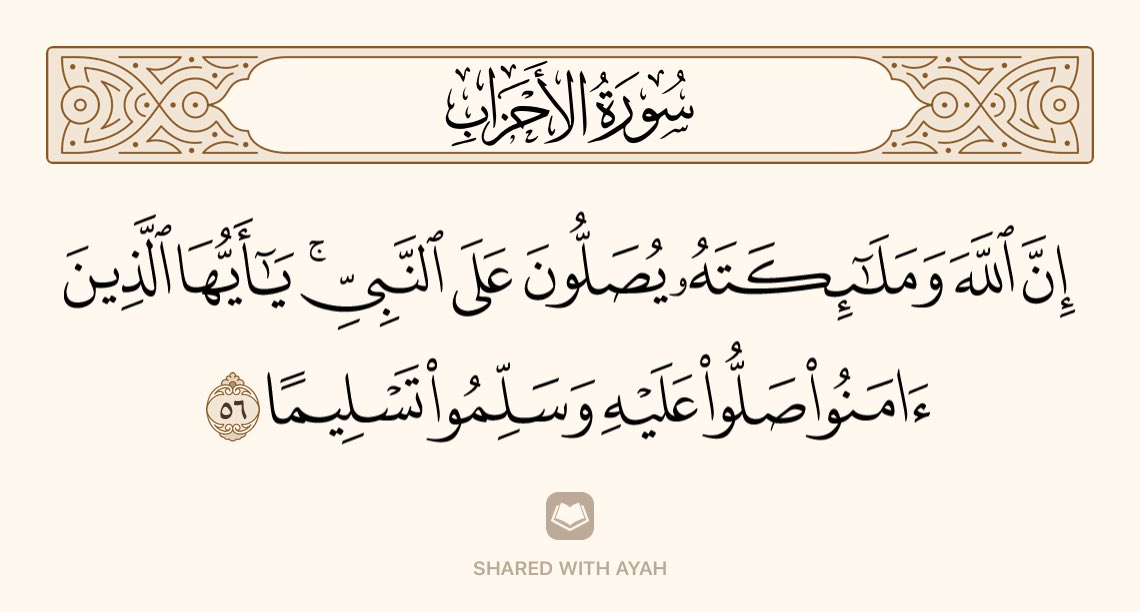 سُورَةُ الأَحْزَابِ
إِنَّ ٱللَّهَ وَمَلَـٰٓئِكَتَهُۥ يُصَلُّونَ عَلَى ٱلنَّبِىِّ ۚ يَـٰٓأَيُّهَا ٱلَّذِينَ
ءَامَنُوا۟ صَلُّوا۟ عَلَيْهِ وَسَلِّمُوا۟ تَسْلِيمًا ٥٦
SHARED WITH AYAH